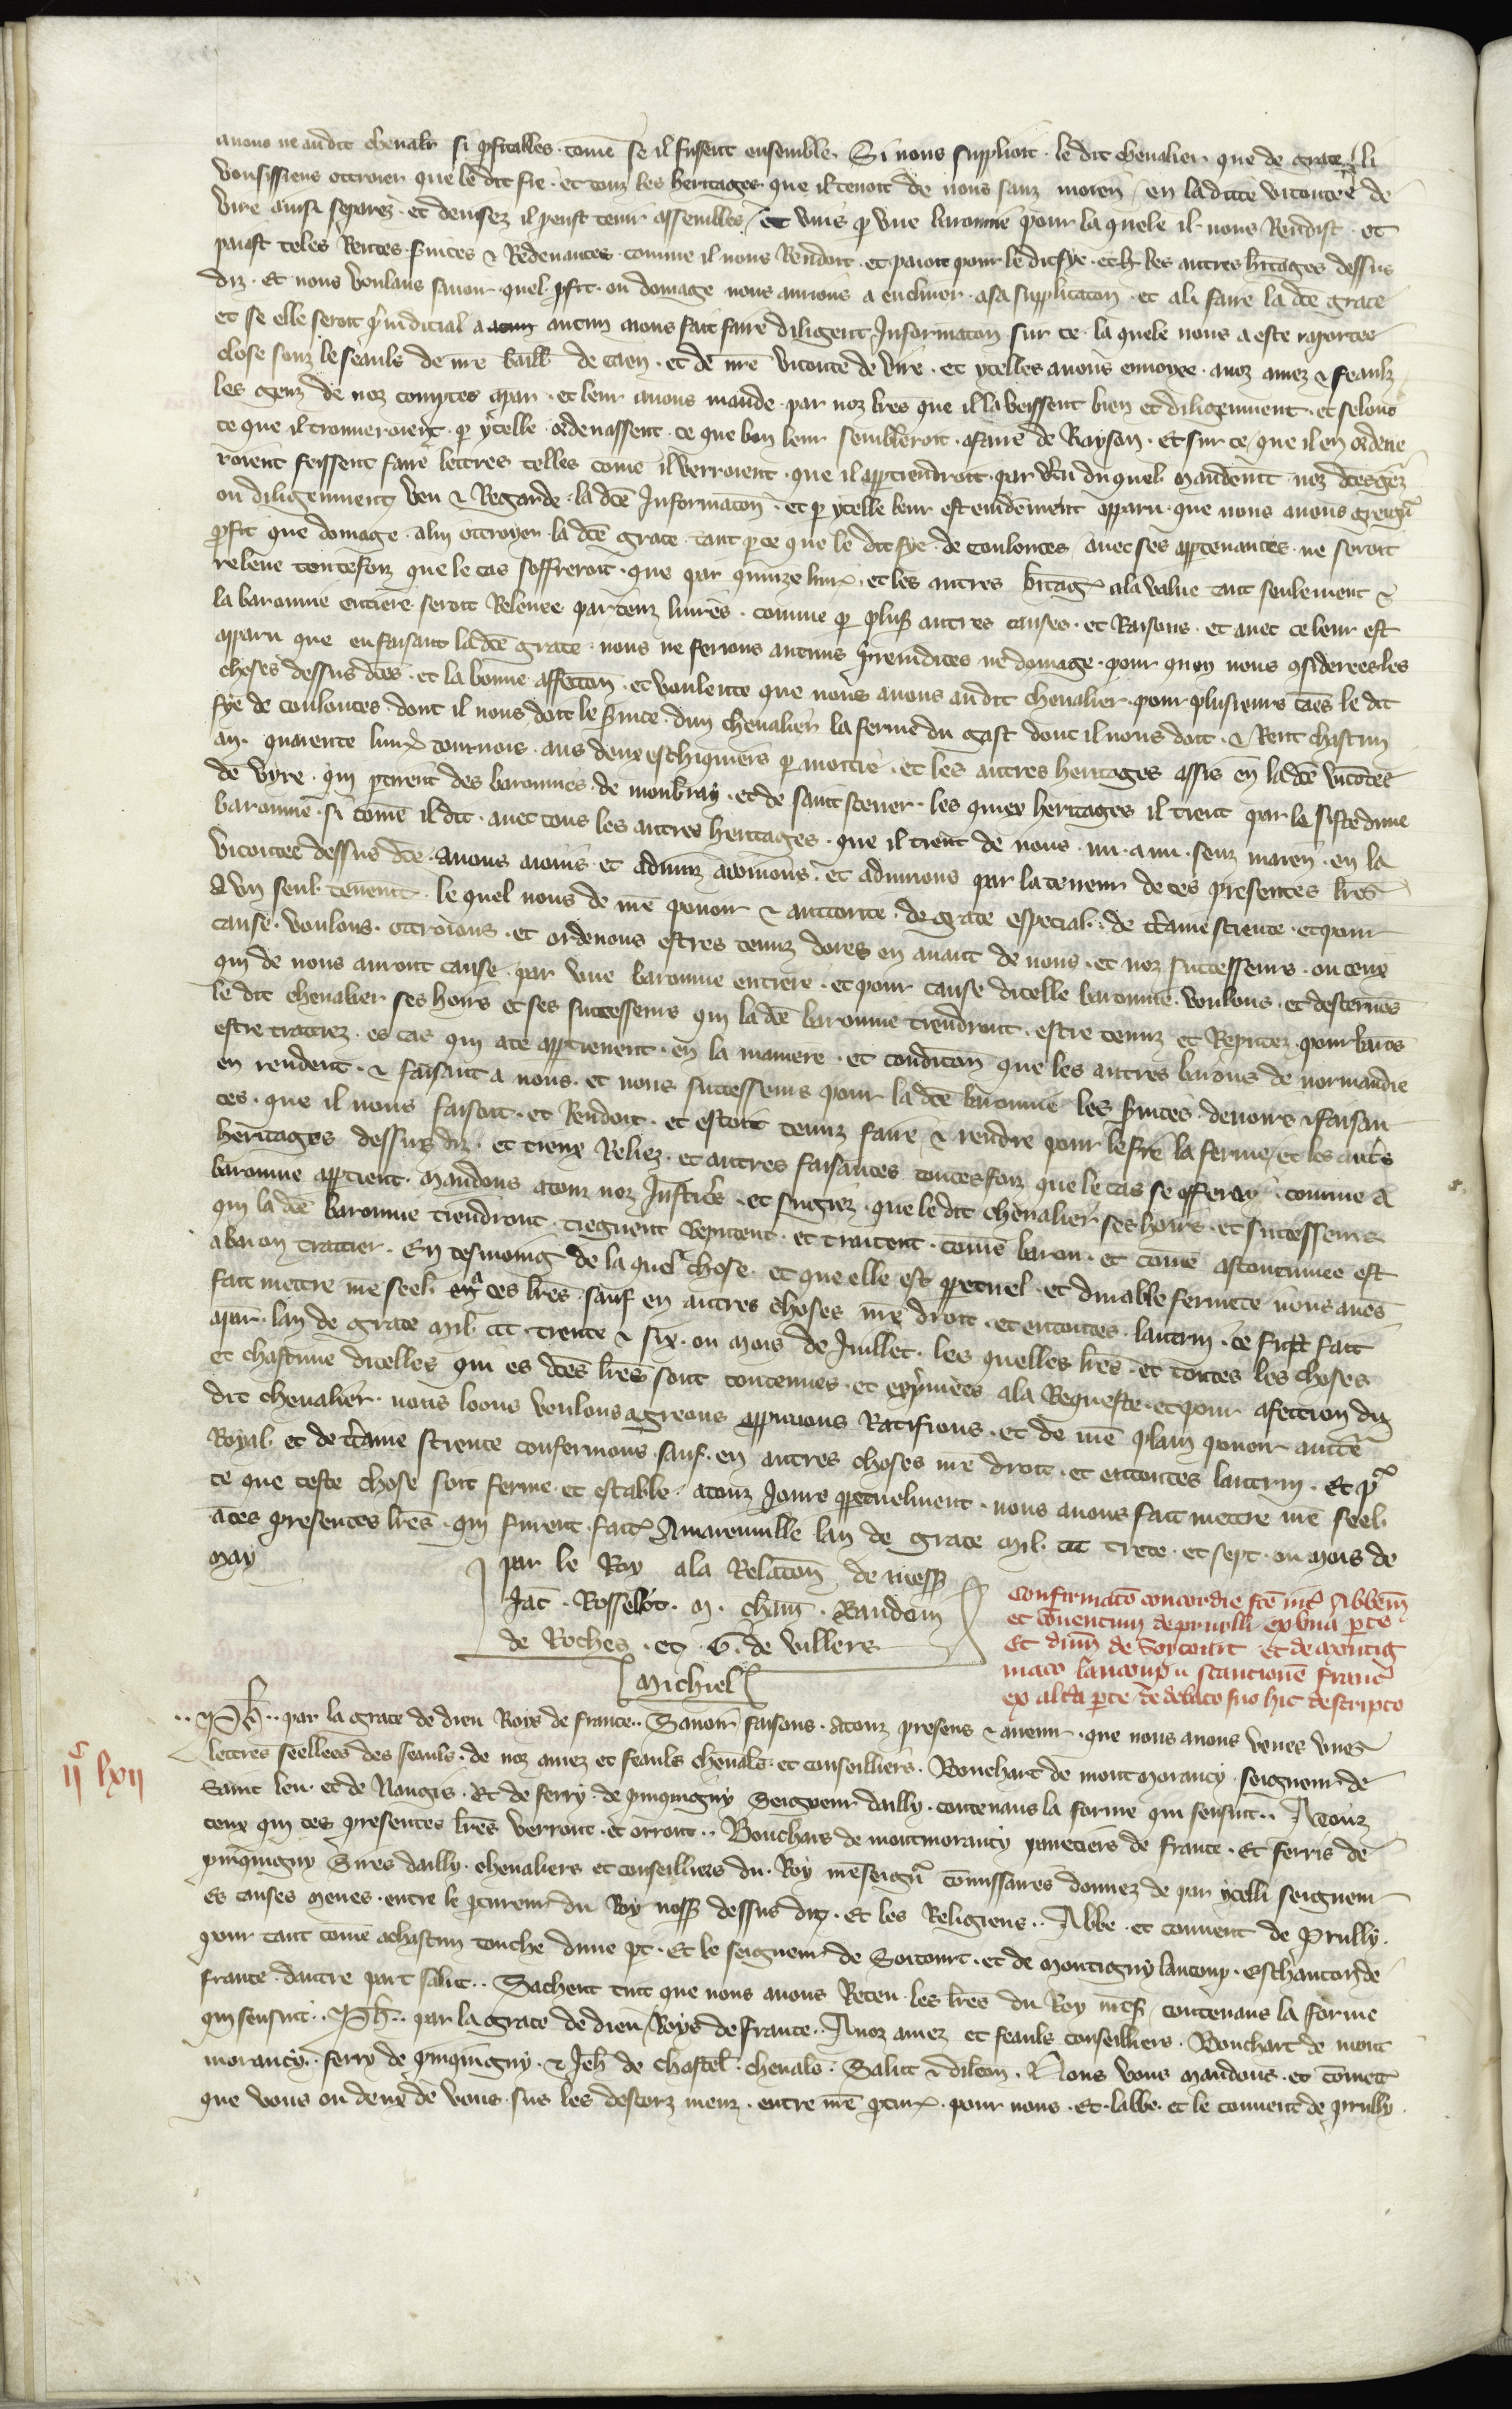 avons ne audit chevalr si pfitables . come se il fussent ensemble . Si nous supplioit . le dit chevalier que de grace li
vousissiens ottroier que le dit fie . et touz les heritages que il tenoit de nous sanz moien en la dicte viconte de
Vire ainsi separez . et devisez il peust tenir assembles et unis p une baronnie pour la quele il nous Rendist . et
paiast teles Rentes . svices & Redevances comme il nous Rendoit . et paioit pour le dit fye . et les autres hitages dessus
diz . Et nous voulans savoir quel pfit . ou domage nous aurions a encliner . a sa supplicaton . et a li faire la dce grace
et se elle seroit piudicial a aucun avons fait faire diligent Informaton sur ce . la quele nous a este raportee
close souz le seauls de nre baill de Caen . et de nre viconte de Vire . et ycelles avons envoyee . a noz amez & feaulz
les genz de noz comptes a par . et leur avons mande . par noz lres que il la veissent bien et diligenment . et selonc
ce que il trouveroient . p ycelle . ordenassent . ce que bon leur sembleroit . a faire de Rayson . Et sur ce que il en ordene
roient feissent faire lettres telles come il verroient . que il apptiendroit . par vtu du quel mandemt noz dces gez
ou diligenment veu & Regarde . la dce Informaton . et p ycelle leur est evidement apparu . que nous avons greignr
pfit que domage . a lui ottroyer . la dce grace . tant p ce que le dit fye . de Coulonces avec ses apptenances . ne seroit
releve toutefoiz que le cas s offreroit . que par quinze livr . et les autres hitag a la value tant seulement &
la baronnie entiere seroit Relevee par cenz livres . comme p plus autres causes . et Raisons . et avec ce leur est
apparu que en faisant la dce grace . nous ne ferions aucuns preiudices ne domage . pour quoy nous considerees les
choses dessus dces . et la bonne affecton . et voulente que nous avons audit chevalier . pour plusieurs cas le dit
fye de Coulonces dont il nous doit le svice . dun chevalier la ferme du gast dont il nous doit . & Rent chascun
an . quarente livr tournois . aus deux eschiquiers p moitie . et les autres heritages assis en la dce vicontee
de Vyre . qui ptirent des baronnies . de Monbray . et de saint Sever . les quiex heritages il tient par la siste dune
baronnie . si come il dit . avec tous les autres heritages . que il tient de nous . nu . a nu . senz maien . en la
vicontee dessus dce . avons aiouns et adiuns aiouinons . et adiuinons par la teneur de ces presentes lres
A un seul tenemt . le quel nous de nre povoir & auctorite . de grace especial . de ctaine science . et pour
cause . voulons . ottroions . et ordenons estres tenuz dores en avant de nous . et noz successeurs . ou ceux
qui de nous auront cause . par une baronnie entiere . et pour cause dicelle baronnie . voulons . et desternons
le dit chevalier ses hoirs et ses successeurs qui la dce baronnie tiendront . estre tenuz et Reputez . pour barons
estre traitiez . es cas qui a ce apptienent . en la maniere . et conditon que les autres barons de normandie
en rendent . & faisant a nous . et nous successeurs pour la dce baronnie les svices . devoirs & faisan
ces . que il nous faisoit . et Rendoit . et estoit tenuz faire & rendre pour le fie la ferme . et les autrs
heritages dessus diz . et tieux Reliez . et autres faisances toutesfoiz que le cas se offerray . comme a
baronnie apptient . Mandons a touz noz Justics . et subgiez . que le dit chevalier ses hoirs . et successeurs
qui la dce baronnie tiendront . tiegnent reputent . et traitent . come baron . et come acoutumee est
a baron traitier . En tesmoing de la quel chose . et que elle est ppetuel . et durable fermete nous avons
fait mettre nre seel a ces lres . sauf en autres choses nre droit . et en toutes lautrui . Ce fu fait
a par . lan de grace mil . ccc . trente & six . ou mois de Juillet . les quelles lres . et toutes les choses
et chascune dicelles qui es dces lres sont contenues . et exprimees a la Requeste . et pour afection du
dit chevalier . nous loons voulons agreons approuvons Ratifions . et de nre plain povoir aucte
Royal et de ctaine science confermons . sauf . en autres choses nre droit . et en toutes lautrui . Et pr
ce que ceste chose soit ferme . et estable . a touz jours ppetuelment . nous avons fait mettre nre seel
a ces presentes lres . qui furent . fait A Maienville lan de grace mil . ccc trete . et sept . ou mois de
may
par le Roy a la Relaton de mess
Jac . Rosselot . M . cham . Raudoin
de Roches . et . G . de Villers
Michiel
Confirmato concordie fce intr Abbem
et conventum de pruylli ex una pte
Et dnm de Soycourt et de montig
niaco lancoup scancione Franc
ex alta pte de debato suo hic descripto
iic lxii
.. Ph .. par la grace de dieu Roys de france .. Savoir faisons . A touz presens & avenir . que nous avons veues unes
lettres seellees des seauls . de noz amez et feauls chevals . et conseilliers . Bouchart de montmorancy . seigneur de
Saint leu . et de Nangis . Et de ferry . de pinquigny Seigneur dailly . contenans la forme qui sensuit .. A touz
ceux qui ces presentes lres verront . et orront .. Bouchars de montmorancy paneciers de france . Et ferris de
pinquigny Sires dailly . chevaliers et conseilliers du . Roy nreseignr comissaires donnez de par ycelli seigneur
Es causes meues . entre le pcureur du Roy noss dessus diz . Et les Religieus .. Abbe . et convent de Prully .
pour tant come a chascun touche dune pt . Et le seigneur de Soicourt . et de Montigny lancoup . Eschancon de
france . dautre part salut .. Sachent tuit que nous avons Receu les lres du Roy nres contenans la forme
qui sensuit .. Ph .. par la grace de dieu Roys de france .. A noz amez et feauls conseilliers . Bouchart de mont
morancy .. ferry de pinquigny . & Jeh de Chastel . chevals . Salut & dilcon . Nous vous mandons . et comett
que vous ou deux de vous . sus les descorz meuz . entre nre pcur . pour nous . Et . labbe . et le convent de prully .